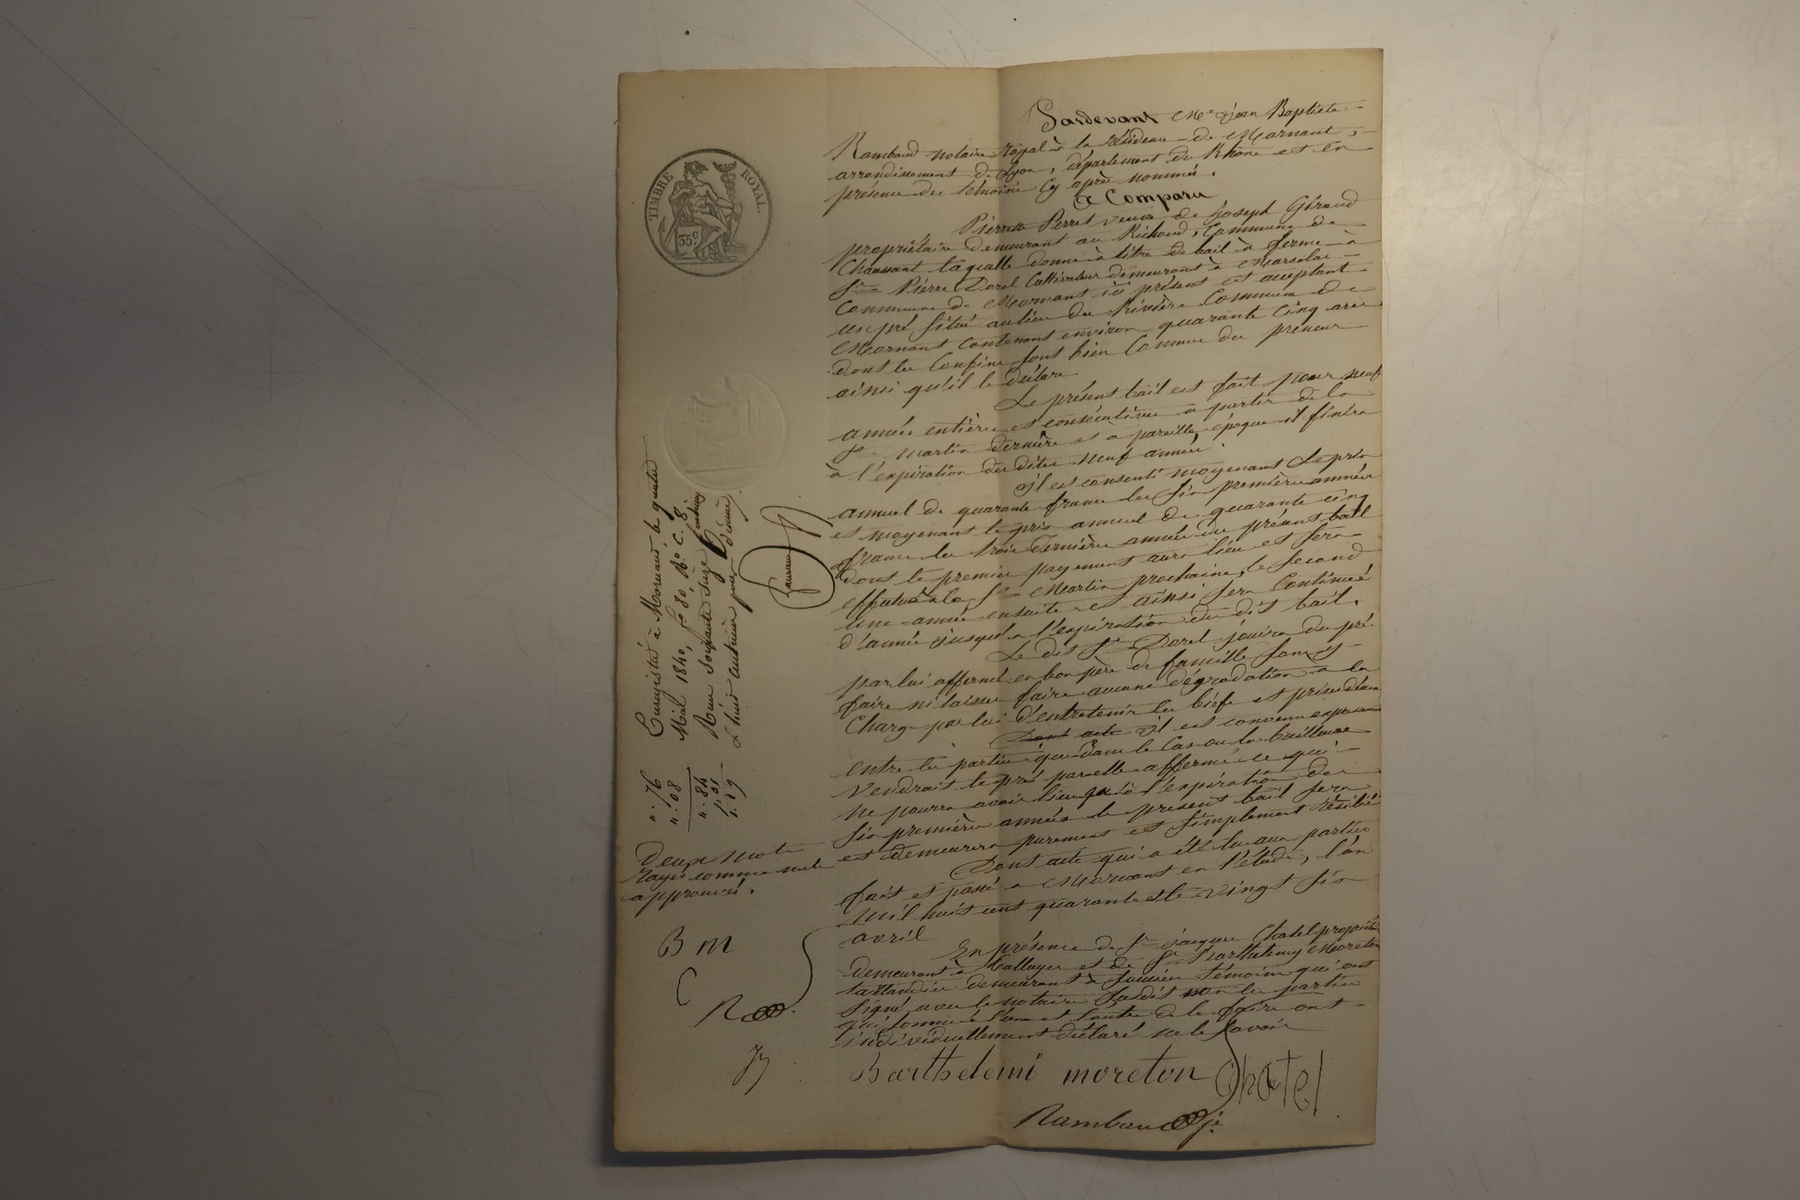 TIMBRE ROYAL.
35c
Pardevant Me Jean Baptiste
Rambaud notaire royal à la résidence de Mornant,
arrondissement de Lyon, département du Rhône et en
présence des témoins cy après nommés.
A Comparu
Pierrette Perret veuve de Joseph Giraud
propriétaire demeurant au Richoud, Commune de
Chaussant laquelle donne à titre de bail à ferme à
Sr Pierre Dorel Cultivateur demeurant à
Commune de Mornant ici présent et acceptant
un pré situé au lieu de Rivière Commune de
Mornant contenant environ quarante cinq ares
dont les Confins sont bien Connus du preneur
ainsi qu'il le déclare
Le présent bail est fait pour neuf
années entières et consécutives à partir de la
St Martin dernière et à pareille époque il finira
à l'expiration des dites neuf années
Il est consenti moyenant Le prix
annuel de quarante francs les six premières années
et moyenant le prix annuel de quarante cinq
francs les trois dernières années du présent bail
dont le premier payement aura lieu et sera
effectué à la St Martin prochaine, le second
une année ensuite et ainsi sera Continué
d'année jusqu'à l'expiration du dit bail.
Le dit Sr Dorel jouira du pré
par lui affermé en bon père de famille sans y
faire ni laisser faire aucune dégradation à la
Charge par lui d'entretenir les biefs et prises d'eau
Dont acte il est convenu expressément
entre les parties que dans le Cas ou la bailleuse
vendrait le pré par elle affermé ce qui
ne pourra avoir lieu qu'à l'expiration des
six premières années le présent bail sera
et demeurera purement et simplement résilié
Dont acte qui a été lu aux parties
fait et passé à Mornant en l'étude, l'an
mil huit cent quarante et le vingt six
avril
En présence de Sr Jacques Chatel propriétaire
demeurant à et de Sr Barthelemy Moreton
demeurant à témoins qui ont
signé avec le notaire susdit non les parties
qui sommés l'une et l'autre de le faire ont
individuellement déclaré ne le savoir
Barthelemi moreton Chatel
Rambaud
Enregistré à Mornant le quatre
Mai 1840, fo 80, Ro C. 8
Reçu soixante seize centimes
". 76
". 08
". 84
Deux mots
rayés comme nuls
approuvés.
B m
C
R